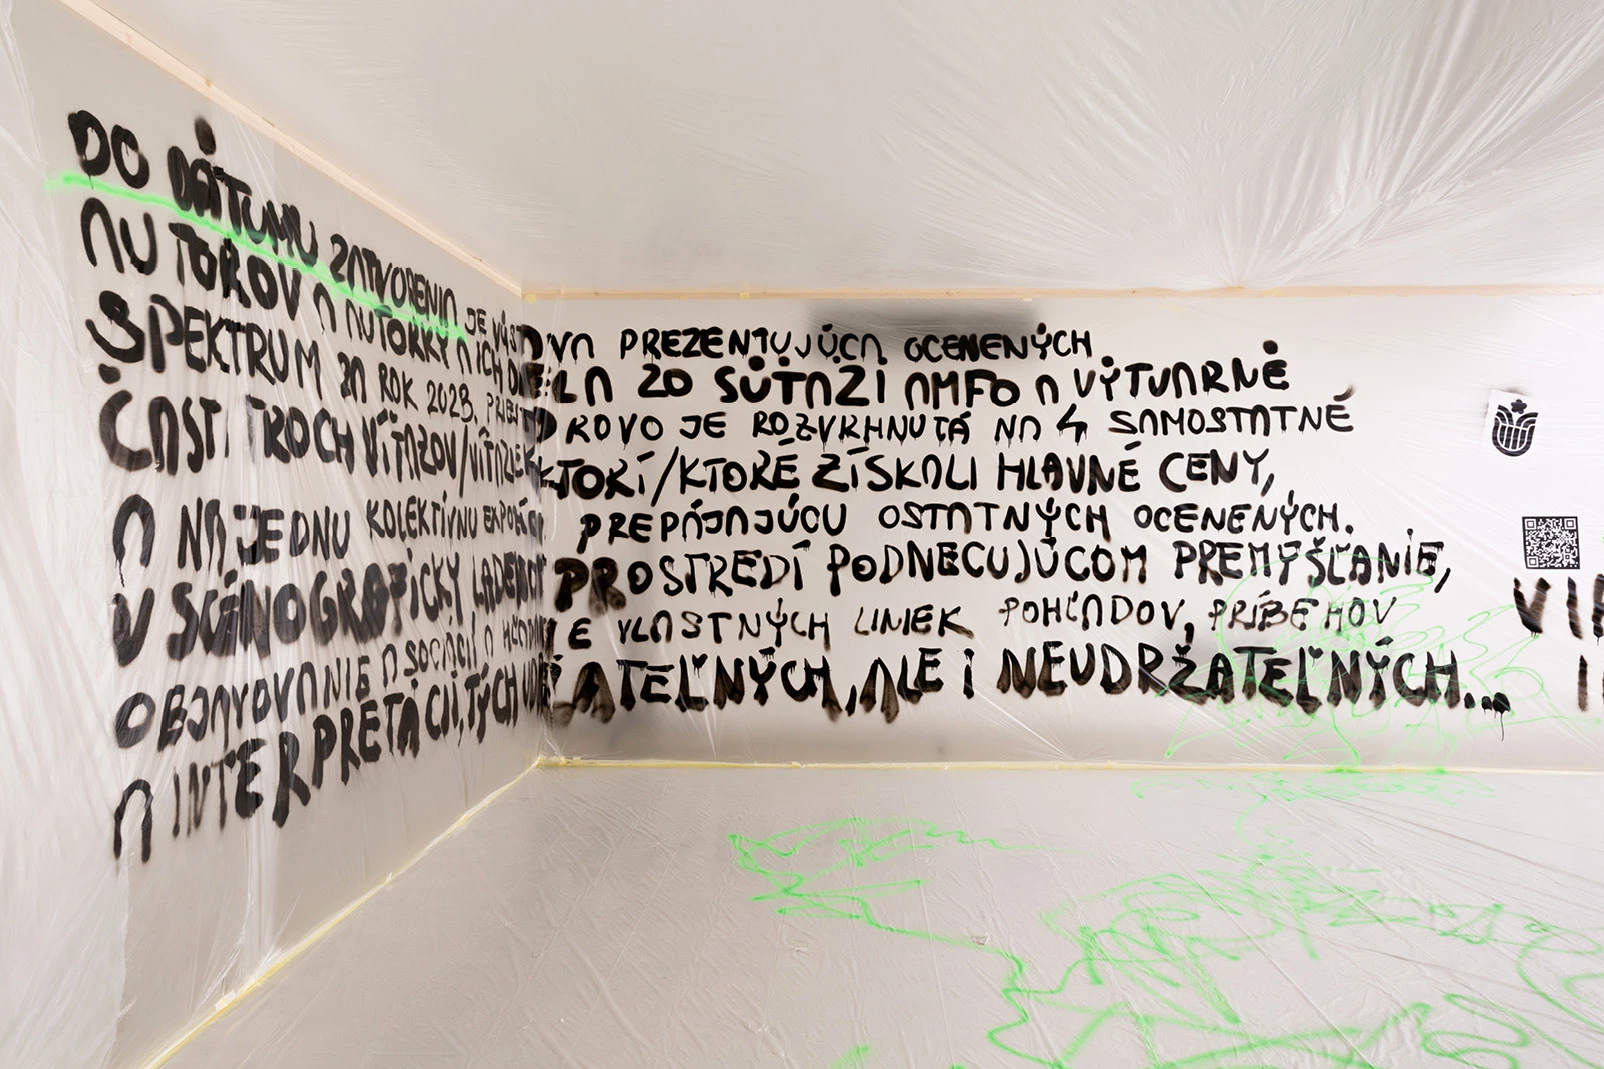 DO DÁTUMU ZATVORENIA JE VÝSTAVA PREZENTUJÚCA OCENENÝCH
AUTOROV A AUTORKY A ICH DIELA ZO SÚŤAŽÍ AMFO A VÝTVARNÉ
SPEKTRUM ZA ROK 2023, PRIESTOROVO JE ROZVRHNUTÁ NA 4 SAMOSTATNÉ
ČASTI TROCH VÍŤAZOV/VÍŤAZIEK KTORÍ/KTORÉ ZÍSKALI HLAVNÉ CENY,
A NA JEDNU KOLEKTÍVNU EXPOZÍCIU PREPÁJAJÚCU OSTATNÝCH OCENENÝCH.
V SCÉNOGRAFICKY LADENOM PROSTREDÍ PODNECUJÚCOM PREMÝŠĽANIE,
OBJAVOVANIE ASOCIÁCIÍ A HĽADANIE VLASTNÝCH LINIEK POHĽADOV, PRÍBEHOV
A INTERPRETÁCIÍ, TÝCH UDRŽATEĽNÝCH, ALE I NEUDRŽATEĽNÝCH...